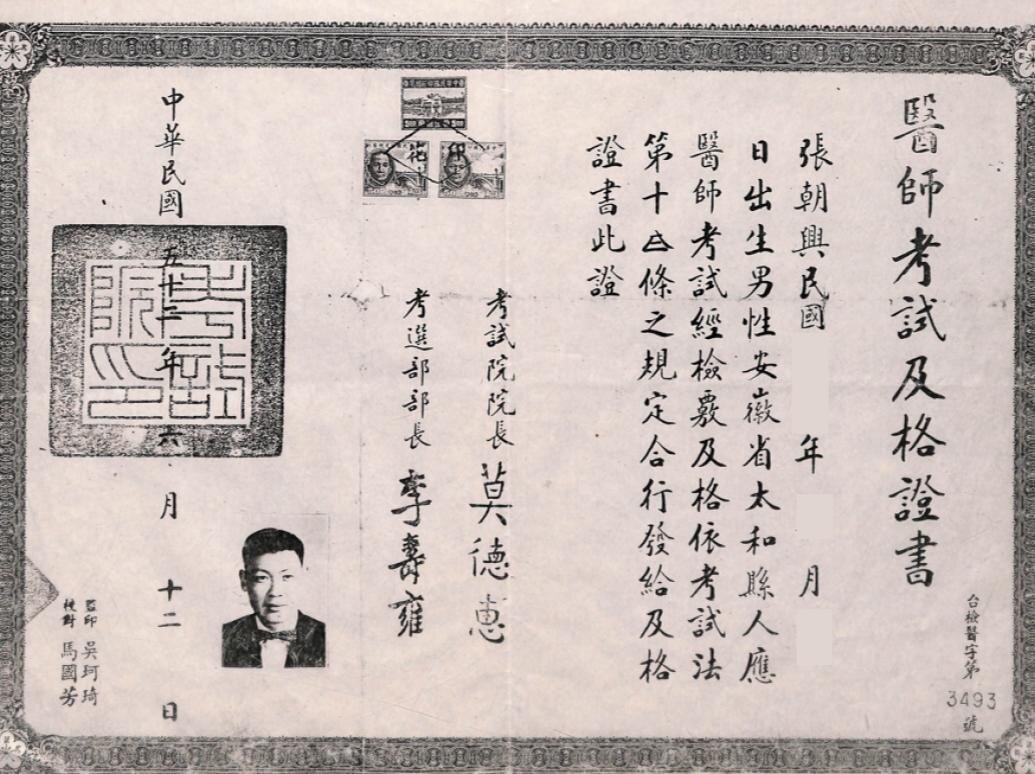 醫師考試及格證書
台檢醫字第
3493
號
張朝興民國 年 月
日出生男性安徽省太和縣人應
醫師考試經檢覈及格依考試法
第十五條之規定合行發給及格
證書此證
印花
考試院院長 莫德惠
考選部部長 李壽雍
中華民國五十二年六月十二日
考試院印
監印 吳珂琦
校對 馬國芳